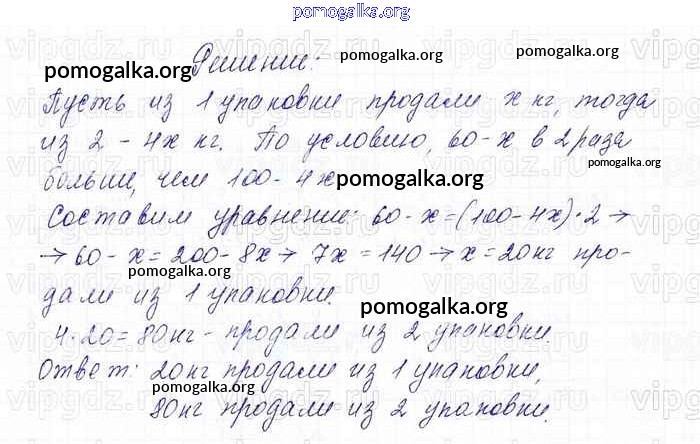 pomogalka.org
Решение:
pomogalka.org pomogalka.org pomogalka.org
Пусть из 1 упаковки продали x кг, тогда
из 2 - 4x кг. По условию, 60-x в 2 раза
pomogalka.org
больше, чем 100-4x pomogalka.org
Составим уравнение: 60-x=(100-4x)·2→
→60-x=200-8x→ 7x=140→x=20кг про-
pomogalka.org
дали из 1 упаковки.
pomogalka.org
4·20=80кг-продали из 2 упаковки.
Ответ: 20кг продали из 1 упаковки,
pomogalka.org
80кг продали из 2 упаковки.